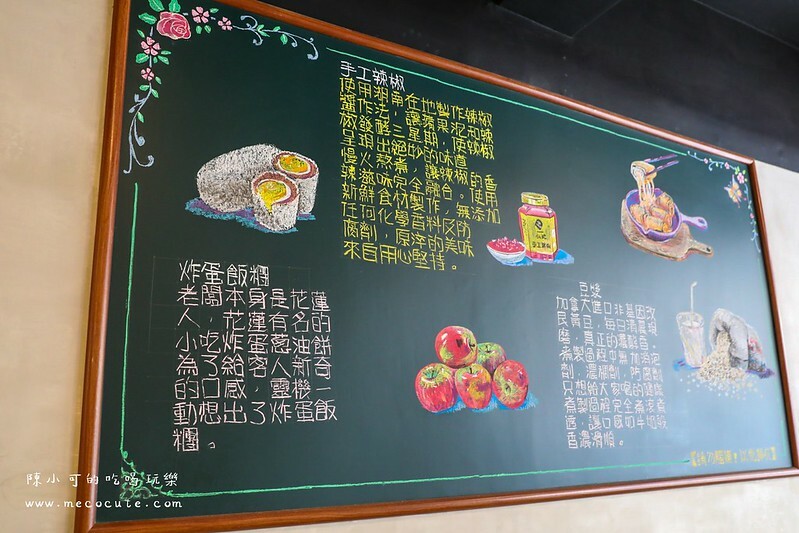 手工辣椒
使用湖南在地製作辣椒
醬作法，讓蘋果泥和辣
椒發酵三星期，使辣椒
呈現出絕妙的味道
慢火熬煮，讓辣椒的香
辣滋味完全融合。使用
新鮮食材製作，無添加
任何化學香料及防
腐劑，原淳的美味
來自用心堅持。
炸蛋飯糰
老闆本身是花蓮
人，花蓮有名的
小吃炸蛋蔥油餅
為了給客人新奇
的口感，靈機一
動想出了炸蛋飯
糰。
豆漿
加拿大進口非基因改
良黃豆，每日清晨現
磨，真正的濃醇香。
煮製過程中無加消泡
劑，濃稠劑，防腐劑
只想給大家喝的健康
煮製過程完全煮滾煮
透，讓口感如牛奶般
香濃滑順。
手工辣椒
陳小可的吃喝玩樂
www.mecocute.com